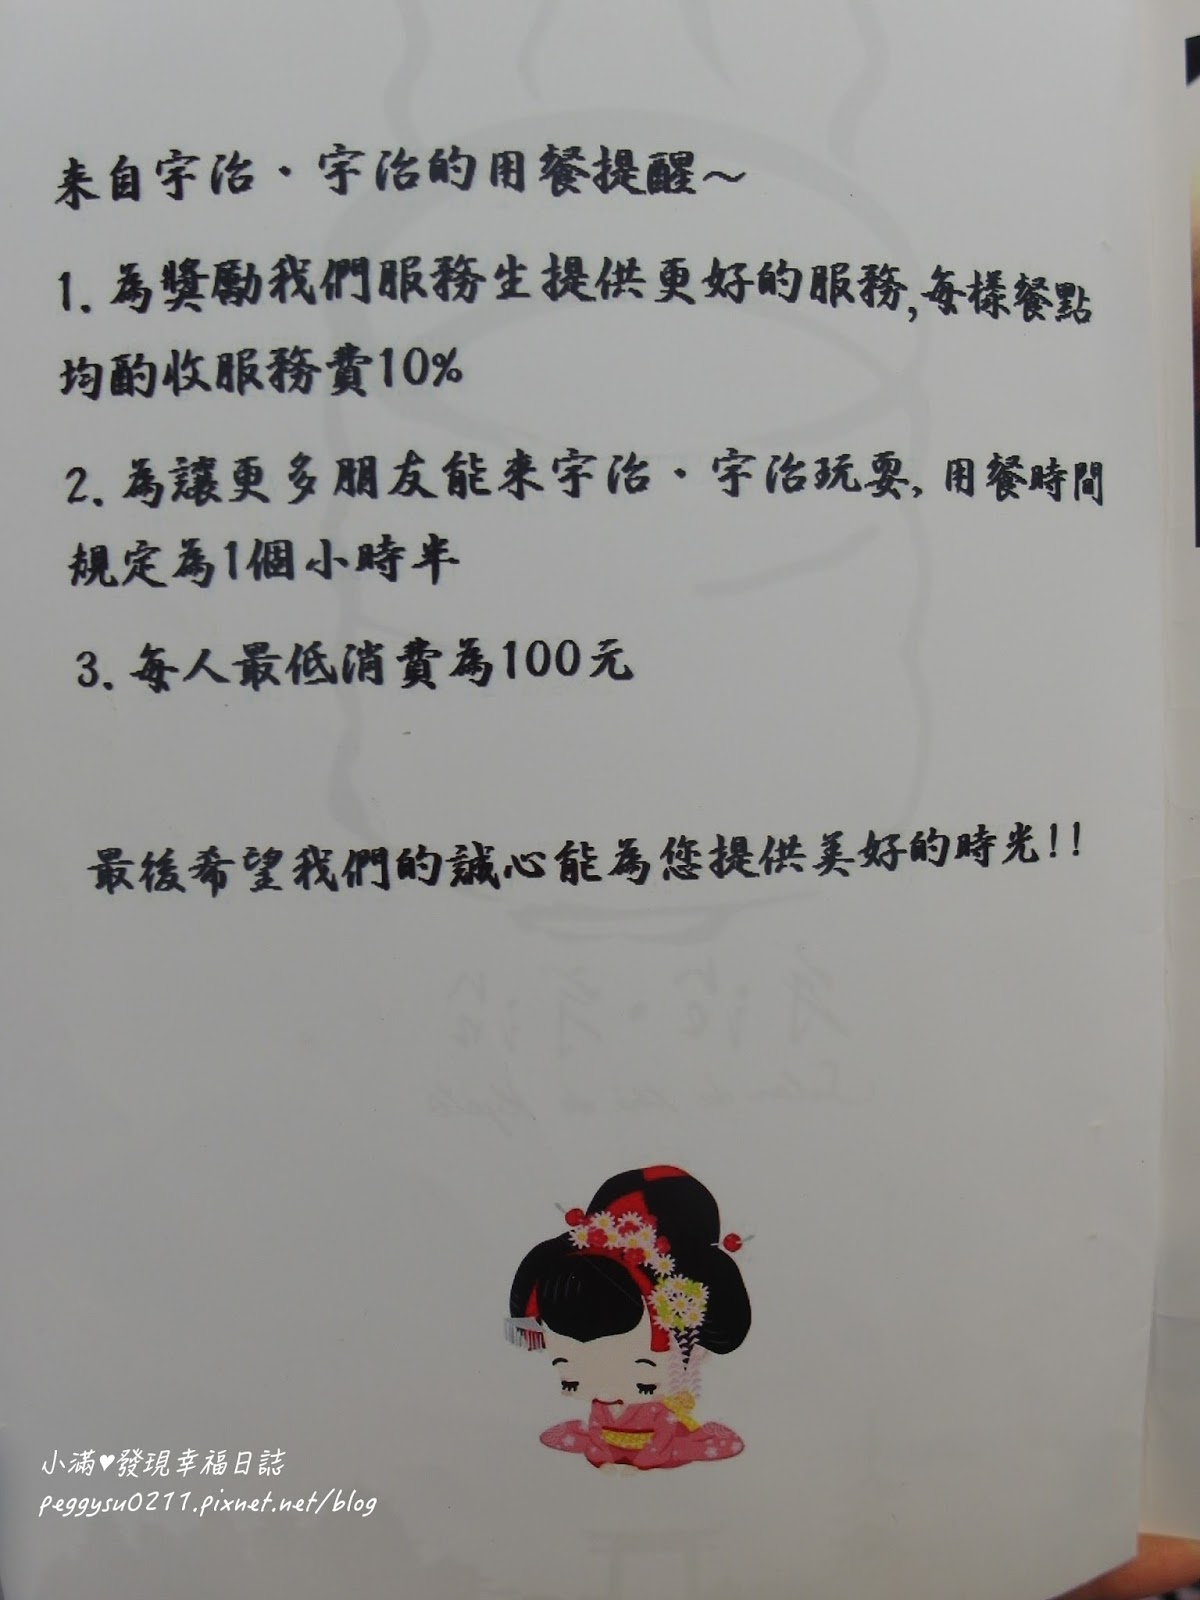 来自宇治・宇治的用餐提醒～
1. 為獎勵我們服務生提供更好的服務,每樣餐點
均酌收服務費10%
2. 為讓更多朋友能來宇治・宇治玩耍, 用餐時間
規定為1個小時半
3. 每人最低消費為100元
最後希望我們的誠心能為您提供美好的時光!!
小滿♥發現幸福日誌
peggysu0211.pixnet.net/blog